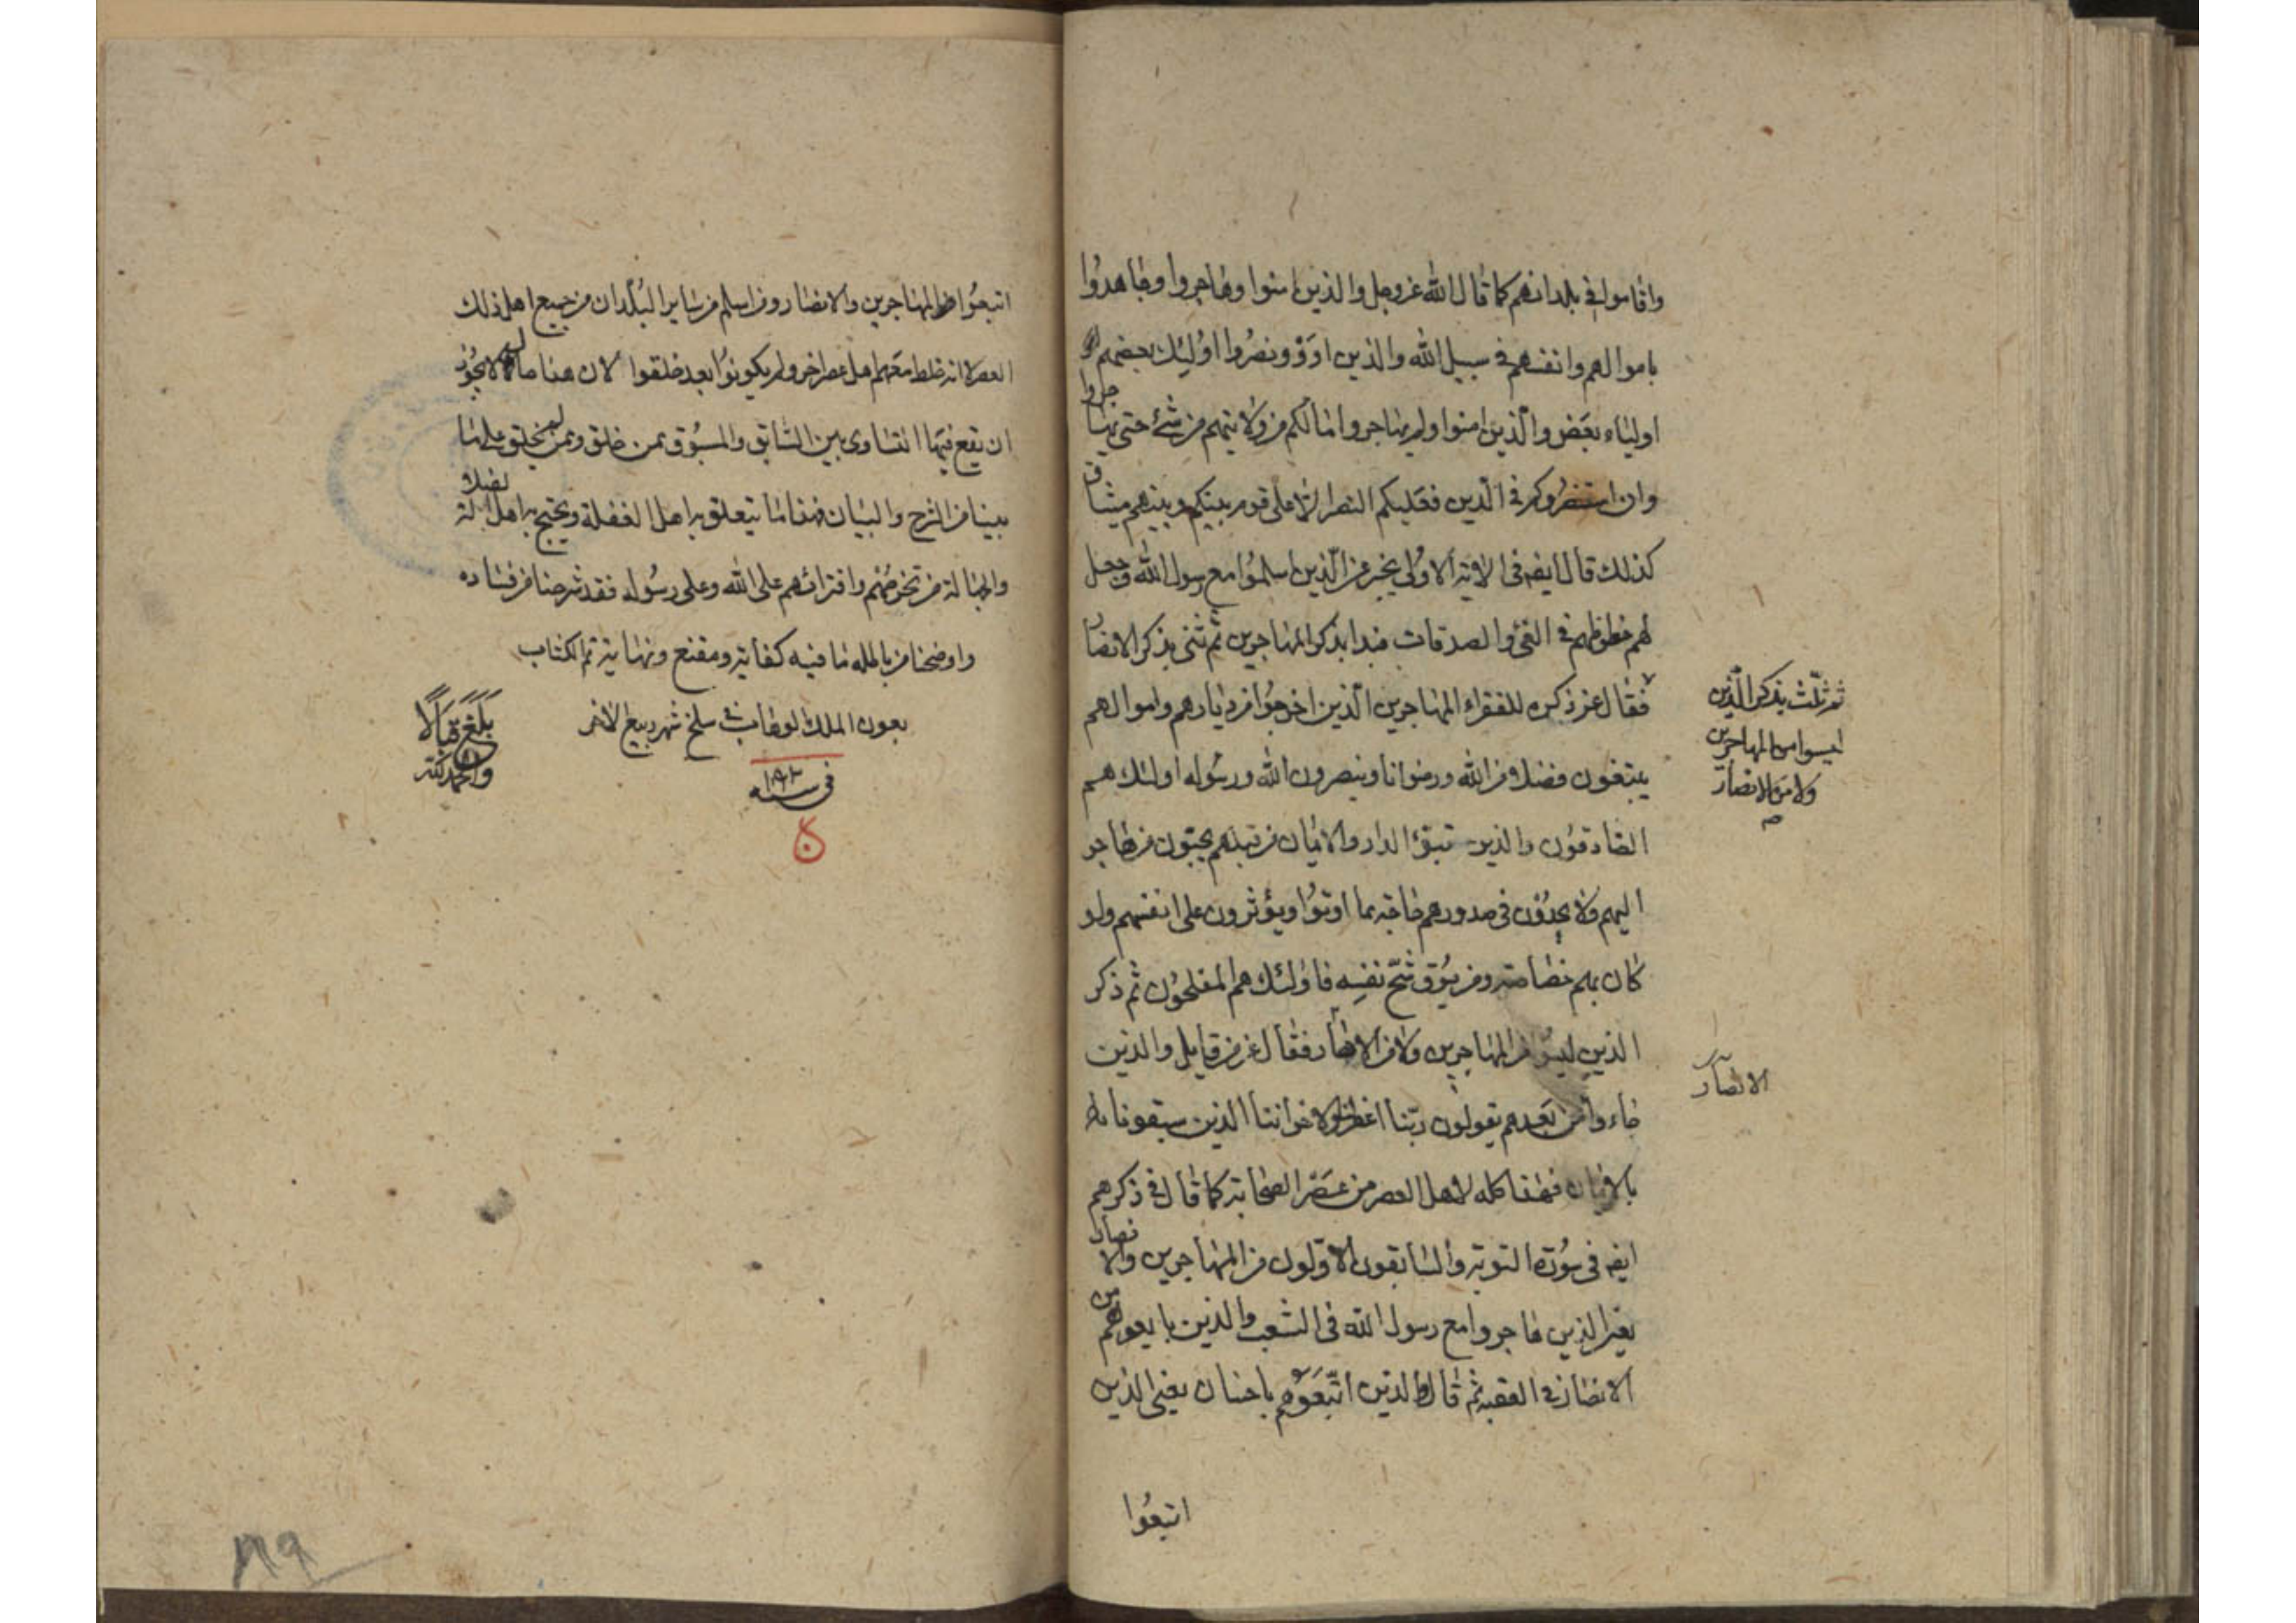 واقاموا في بلدانهم كما قال الله عز وجل والذين امنوا وهاجروا وجاهدوا
باموالهم وانفسهم في سبيل الله والذين اووا ونصروا اولئك بعضهم
اولياء بعض والذين امنوا ولم يهاجروا مالكم من ولايتهم من شئ حتى يهاجروا
وان استنصروكم في الدين فعليكم النصر الا على قوم بينكم وبينهم ميثاق
كذلك قال ايضه في الاية الاولى يخبر عن الذين اسلموا مع رسول الله وجعل
لهم حظوظهم في الفئ والصدقات فبدا بذكر المهاجرين ثم ثنى بذكر الانصار
ثم ثلث بذكر الذين
ليسوا من المهاجرين
ولا من الانصار
صح
فقال عز ذكره للفقراء المهاجرين الذين اخرجوا من ديارهم واموالهم
يبتغون فضلا من الله ورضوانا وينصرون الله ورسوله اولئك هم
الصادقون والذين تبوؤ الدار والايمان من قبلهم يحبون من هاجر
اليهم ولا يجدون في صدورهم حاجة مما اوتوا ويؤثرون على انفسهم ولو
كان بهم خصاصة ومن يوق شح نفسه فاولئك هم المفلحون ثم ذكر
الذين ليسوا من المهاجرين ولا من الانصار فقال عز من قايل والذين
الانصار
جاءوا من بعدهم يقولون ربنا اغفر لنا ولاخواننا الذين سبقونا
بالايمان فهذا كله لاهل العصر من عصر الصحابة كما قال في ذكرهم
ايضه في سورة التوبة والسابقون الاولون من المهاجرين والانصار
يعني الذين هاجروا مع رسول الله في الشعب والذين بايعوهم من
الانصار في العقبة ثم قال والذين اتبعوهم باحسان يعني الذين
اتبعوا
اتبعوا المهاجرين والانصار ومن اسلم من ساير البلدان من جميع اهل ذلك
العصر لا انه خلط معهم اهل عصر اخر ولم يكونوا بعد خلقوا لان هذا مما لا يجوز
ان يقع فيها التساوى بين السابق والمسبوق بمن خلق وممن لم يخلق على ما
بينا من الشرح والبيان فهذا ما يتعلق به اهل الغفلة ويحتج به اهل الضلالة
والجهالة من تخرصهم وافترائهم على الله وعلى رسوله فقد شرحنا من فساده
واوضحنا من باطله ما فيه كفاية ومقنع ونهاية تم الكتاب
بعون الملك الوهاب في سلخ شهر ربيع الاخر
في سنه
بلغ قبالا
والحمد لله